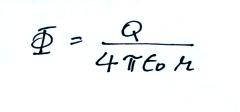 Φ = Q / 4πϵ₀ r